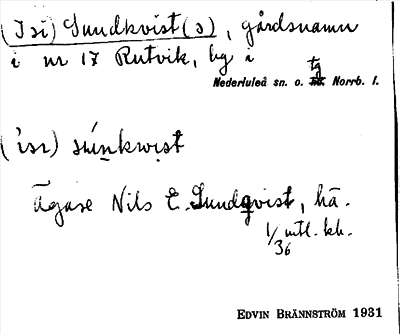 (Isi) Sundkvist(s), gårdsnamn
i nr 17 Rutvik, by i
tg
Nederluleå sn. o. Norrb. l.
(ʼisı) súnkwıst
Ägare Nils E. Sundqvist, hä.
1/36 mtl. kh.
EDVIN BRÄNNSTRÖM 1931